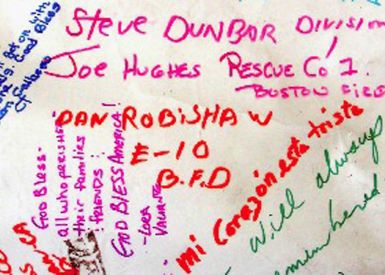 Steve DUNBAR DIVISION
Joe HUGHES RESCUE Co 1.
BOSTON FIRE
DAN ROBISHAW
E-10
B.F.D
GOD Bless-
all who perished-
their families
! FRIENDS !
GOD BLESS AMERICA!
- LORA
mi Corazón esta triste
will always
remembered